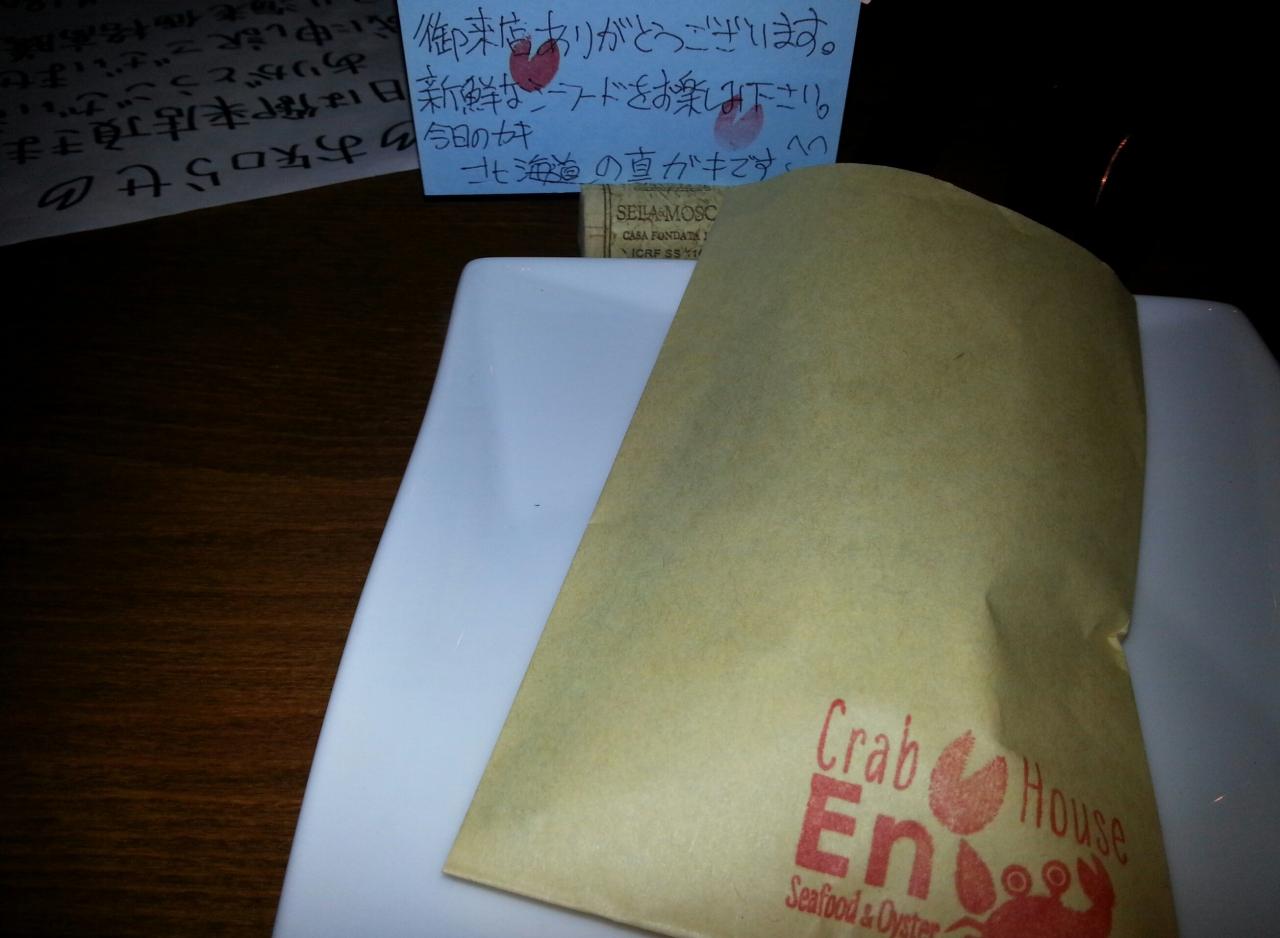 御来店ありがとうございます。
新鮮なシーフードをお楽しみ下さい。
今日のカキ
北海道の真ガキです
SELLA&MOSC
CASA FONDATA
ICRF SS
お知らせ
日は御来店頂きま
ありがとうござい
に申し訳ございませ
Crab House
En
Seafood & Oyster